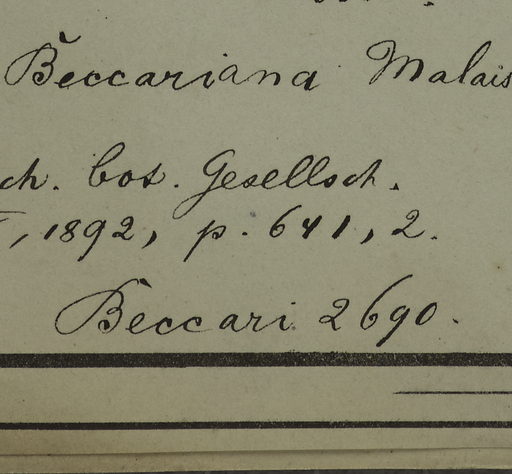 Beccariana Malais
ch. bot. Gesellsch.
, 1892, p. 641, 2.
Beccari 2690.